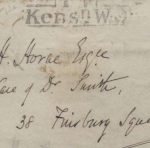 Kensn. W.
H. Horne Esqre
Care of Dr Smith,
38 Finsbury Squa